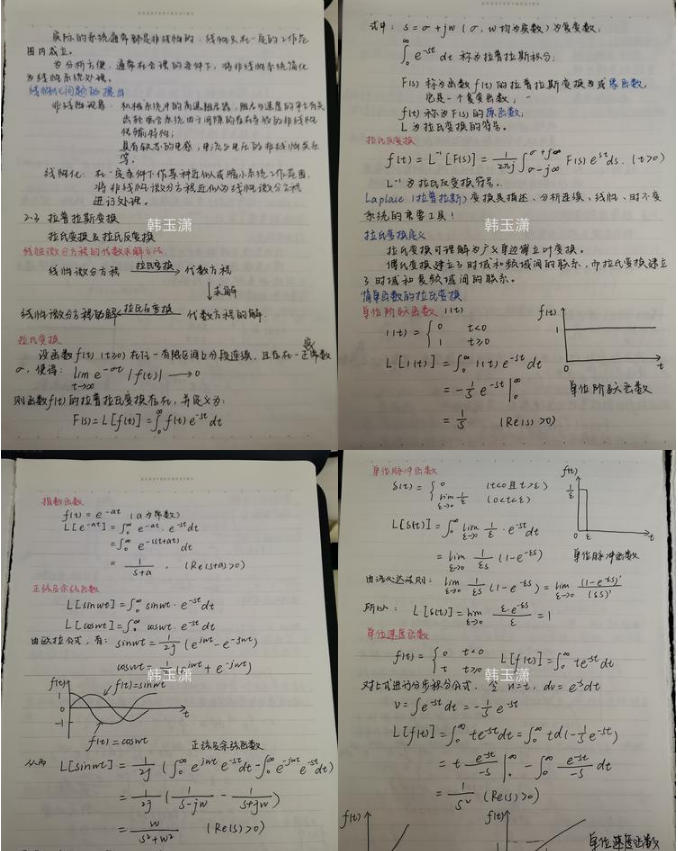 实际的系统通常都是非线性的,线性只在一定的工作范
围内成立。
为分析方便,通常在合理的条件下,将非线性系统简化
为线性系统处理。
线性化问题的提出
非线性现象:机械系统中的高速阻尼器,阻尼力与速度的平方有关
齿轮啮合系统由于间隙的存在导致的非线性
传输特性;
具有铁芯的电感,电流与电压的非线性关系
等。
线性化:在一定条件下作某种近似或缩小系统工作范围,
将非线性微分方程近似为线性微分方程
进行处理。
2-3 拉普拉斯变换
韩玉潇
拉氏变换与拉氏反变换
线性微分方程的代数求解方法
线性微分方程 拉氏变换→ 代数方程
↓求解
线性微分方程的解 ←拉氏反变换 代数方程的解.
拉氏变换
设函数f(t) (t≥0) 在任一有限区间上分段连续,且存在一正实数
σ,使得: lim t→∞ e^-σt |f(t)| → 0
则函数f(t)的拉普拉氏变换存在,并定义为:
F(s)=L[f(t)]=∫₀^∞ f(t)e^-st dt
式中: s=σ+jw (σ, w均为实数)为复变数;
∫₀^∞ e^-st dt 称为拉普拉斯积分;
F(s) 称为函数f(t)的拉普拉斯变换或象函数,
它是一个复变函数;
f(t) 称为F(s)的原函数;
L为拉氏变换的符号。
拉氏反变换
f(t)=L⁻¹[F(s)]=1/2πj ∫σ-j∞^σ+j∞ F(s)e^st ds. (t>0)
L⁻¹为拉氏反变换符号.
Laplace (拉普拉斯)变换是描述、分析连续、线性、时不变
系统的重要工具!
韩玉潇
拉氏变换定义
拉氏变换可理解为广义单边傅立叶变换。
傅氏变换建立了时域和频域间的联系,而拉氏变换建立
了时域和复频域间的联系。
简单函数的拉氏变换
单位阶跃函数 1(t)
f(t)
1(t)={0 t<0
1 t≥0
1
0
t
L[1(t)]=∫₀^∞ 1(t)e^-st dt
=-1/s e^-st |₀^∞
单位阶跃函数
=1/s (Re(s)>0)
指数函数
f(t)=e^-at (a为常数)
L[e^-at]=∫₀^∞ e^-at·e^-st dt
=∫₀^∞ e^-(s+a)t dt
=1/s+a, (Re(s+a)>0)
正弦及余弦函数
L[sinwt]=∫₀^∞ sinwt·e^-st dt
L[coswt]=∫₀^∞ coswt·e^-st dt
由欧拉公式,有: sinwt=1/2j (e^jwt-e^-jwt)
coswt=1/2(e^jwt+e^-jwt)
韩玉潇
f(t)
f(t)=sinwt
1
0
-1
t
f(t)=coswt
正弦及余弦函数
从而 L[sinwt]=1/2j (∫₀^∞ e^jwt e^-st dt-∫₀^∞ e^-jwt e^-st dt)
=1/2j (1/s-jw - 1/s+jw)
=w/s²+w² (Re(s)>0)
单位脉冲函数
f(t)
δ(t)={0 (t<0且t>ε)
lim ε→0 1/ε (0<t<ε)
1/ε
0
ε
t
L[δ(t)]=∫₀^∞ lim ε→0 1/ε·e^-st dt
=lim ε→0 1/εs (1-e^-εs)
单位脉冲函数
由洛必达法则: lim ε→0 1/εs (1-e^-εs)=lim ε→0 (1-e^-εs)'/(εs)'
所以: L[δ(t)]=lim ε→0 ε·e^-εs/ε=1
单位速度函数
f(t)={0 t<0
t t≥0
L[f(t)]=∫₀^∞ te^-st dt
韩玉潇
对上式进行分步积分公式,令 u=t, dv=e^-st dt
v=∫e^-st dt=-1/s e^-st
L[f(t)]=∫₀^∞ te^-st dt=∫₀^∞ td(-1/s e^-st)
=t·e^-st/-s |₀^∞ - ∫₀^∞ e^-st/-s dt
=1/s² (Re(s)>0)
f(t)
f(t)
单位速度函数